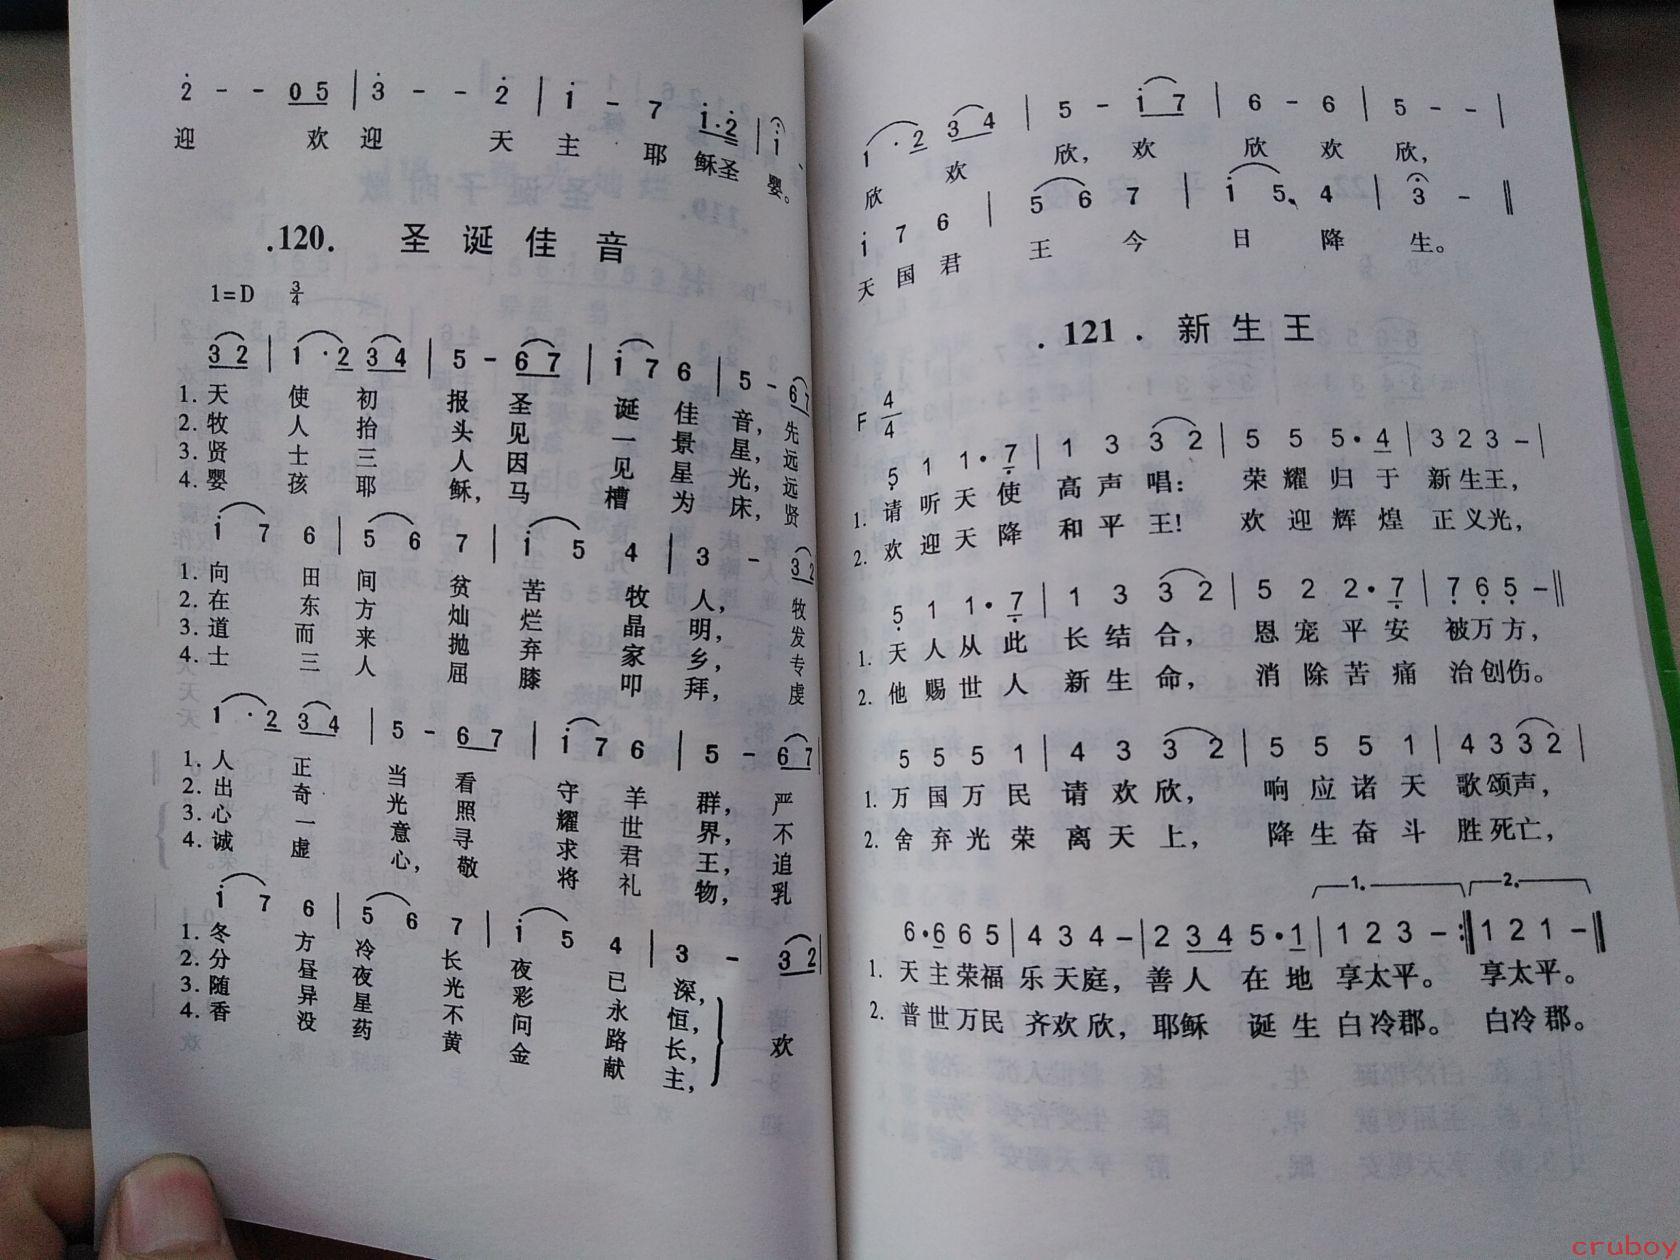 2̇ - - 0 5 | 3̇ - - 2̇ | 1̇ - 7 1̇·2̇ | 1̇
迎 欢 迎 天 主 耶 稣圣 婴。
.120. 圣诞佳音
1=D 3/4
3 2 | 1·2 3 4 | 5 - 6 7 | 1̇ 7 6 | 5 - 6 7
1. 天 使 初 报 圣 诞 佳 音, 先
2. 牧 人 抬 头 见 一 景 星, 远
3. 贤 士 三 人 因 见 星 光, 远
4. 婴 孩 耶 稣, 马 槽 为 床, 贤
1̇ 7 6 | 5 6 7 | 1̇ 5 4 | 3 - 3 2
1. 向 田 间 贫 苦 牧 人, 牧
2. 在 东 方 灿 烂 晶 明, 发
3. 道 而 来 抛 弃 家 乡, 专
4. 士 三 人 屈 膝 叩 拜, 虔
1·2 3 4 | 5 - 6 7 | 1̇ 7 6 | 5 - 6 7
1. 人 正 当 看 守 羊 群, 严
2. 出 奇 光 照 耀 世 界, 不
3. 心 一 意 寻 求 君 王, 追
4. 诚 虚 心, 敬 将 礼 物, 乳
1̇ 7 6 | 5 6 7 | 1̇ 5 4 | 3 - 3 2
1. 冬 方 冷 长 夜 已 深,
2. 分 昼 夜 光 彩 永 恒,
3. 随 异 星 不 问 路 长,
4. 香 没 药 黄 金 献 主,
欢
1·2 3 4 | 5 - 1̇ 7 | 6 - 6 | 5 - - |
欣 欢 欣, 欢 欣 欢 欣,
1̇ 7 6 | 5 6 7 | 1̇ 5 4 | 3 - ‖
天 国 君 王 今 日 降 生。
.121. 新生王
F 4/4
5̣ 1 1·7̣ | 1 3 3 2 | 5 5 5·4 | 3 2 3 - |
1. 请 听 天 使 高 声 唱: 荣 耀 归 于 新 生 王,
2. 欢 迎 天 降 和 平 王! 欢 迎 辉 煌 正 义 光,
5̣ 1 1·7̣ | 1 3 3 2 | 5 2 2·7̣ | 7̣ 6̣ 5̣ - ‖
1. 天 人 从 此 长 结 合, 恩 宠 平 安 被 万 方,
2. 他 赐 世 人 新 生 命, 消 除 苦 痛 治 创 伤。
5 5 5 1 | 4 3 3 2 | 5 5 5 1 | 4 3 3 2 |
1. 万 国 万 民 请 欢 欣, 响 应 诸 天 歌 颂 声,
2. 舍 弃 光 荣 离 天 上, 降 生 奋 斗 胜 死 亡,
1. 2.
6·6 6 5 | 4 3 4 - | 2 3 4 5·1 | 1 2 3 - :‖ 1 2 1 - ‖
1. 天 主 荣 福 乐 天 庭, 善 人 在 地 享 太 平。 享 太 平。
2. 普 世 万 民 齐 欢 欣, 耶 稣 诞 生 白 冷 郡。 白 冷 郡。
cruboy